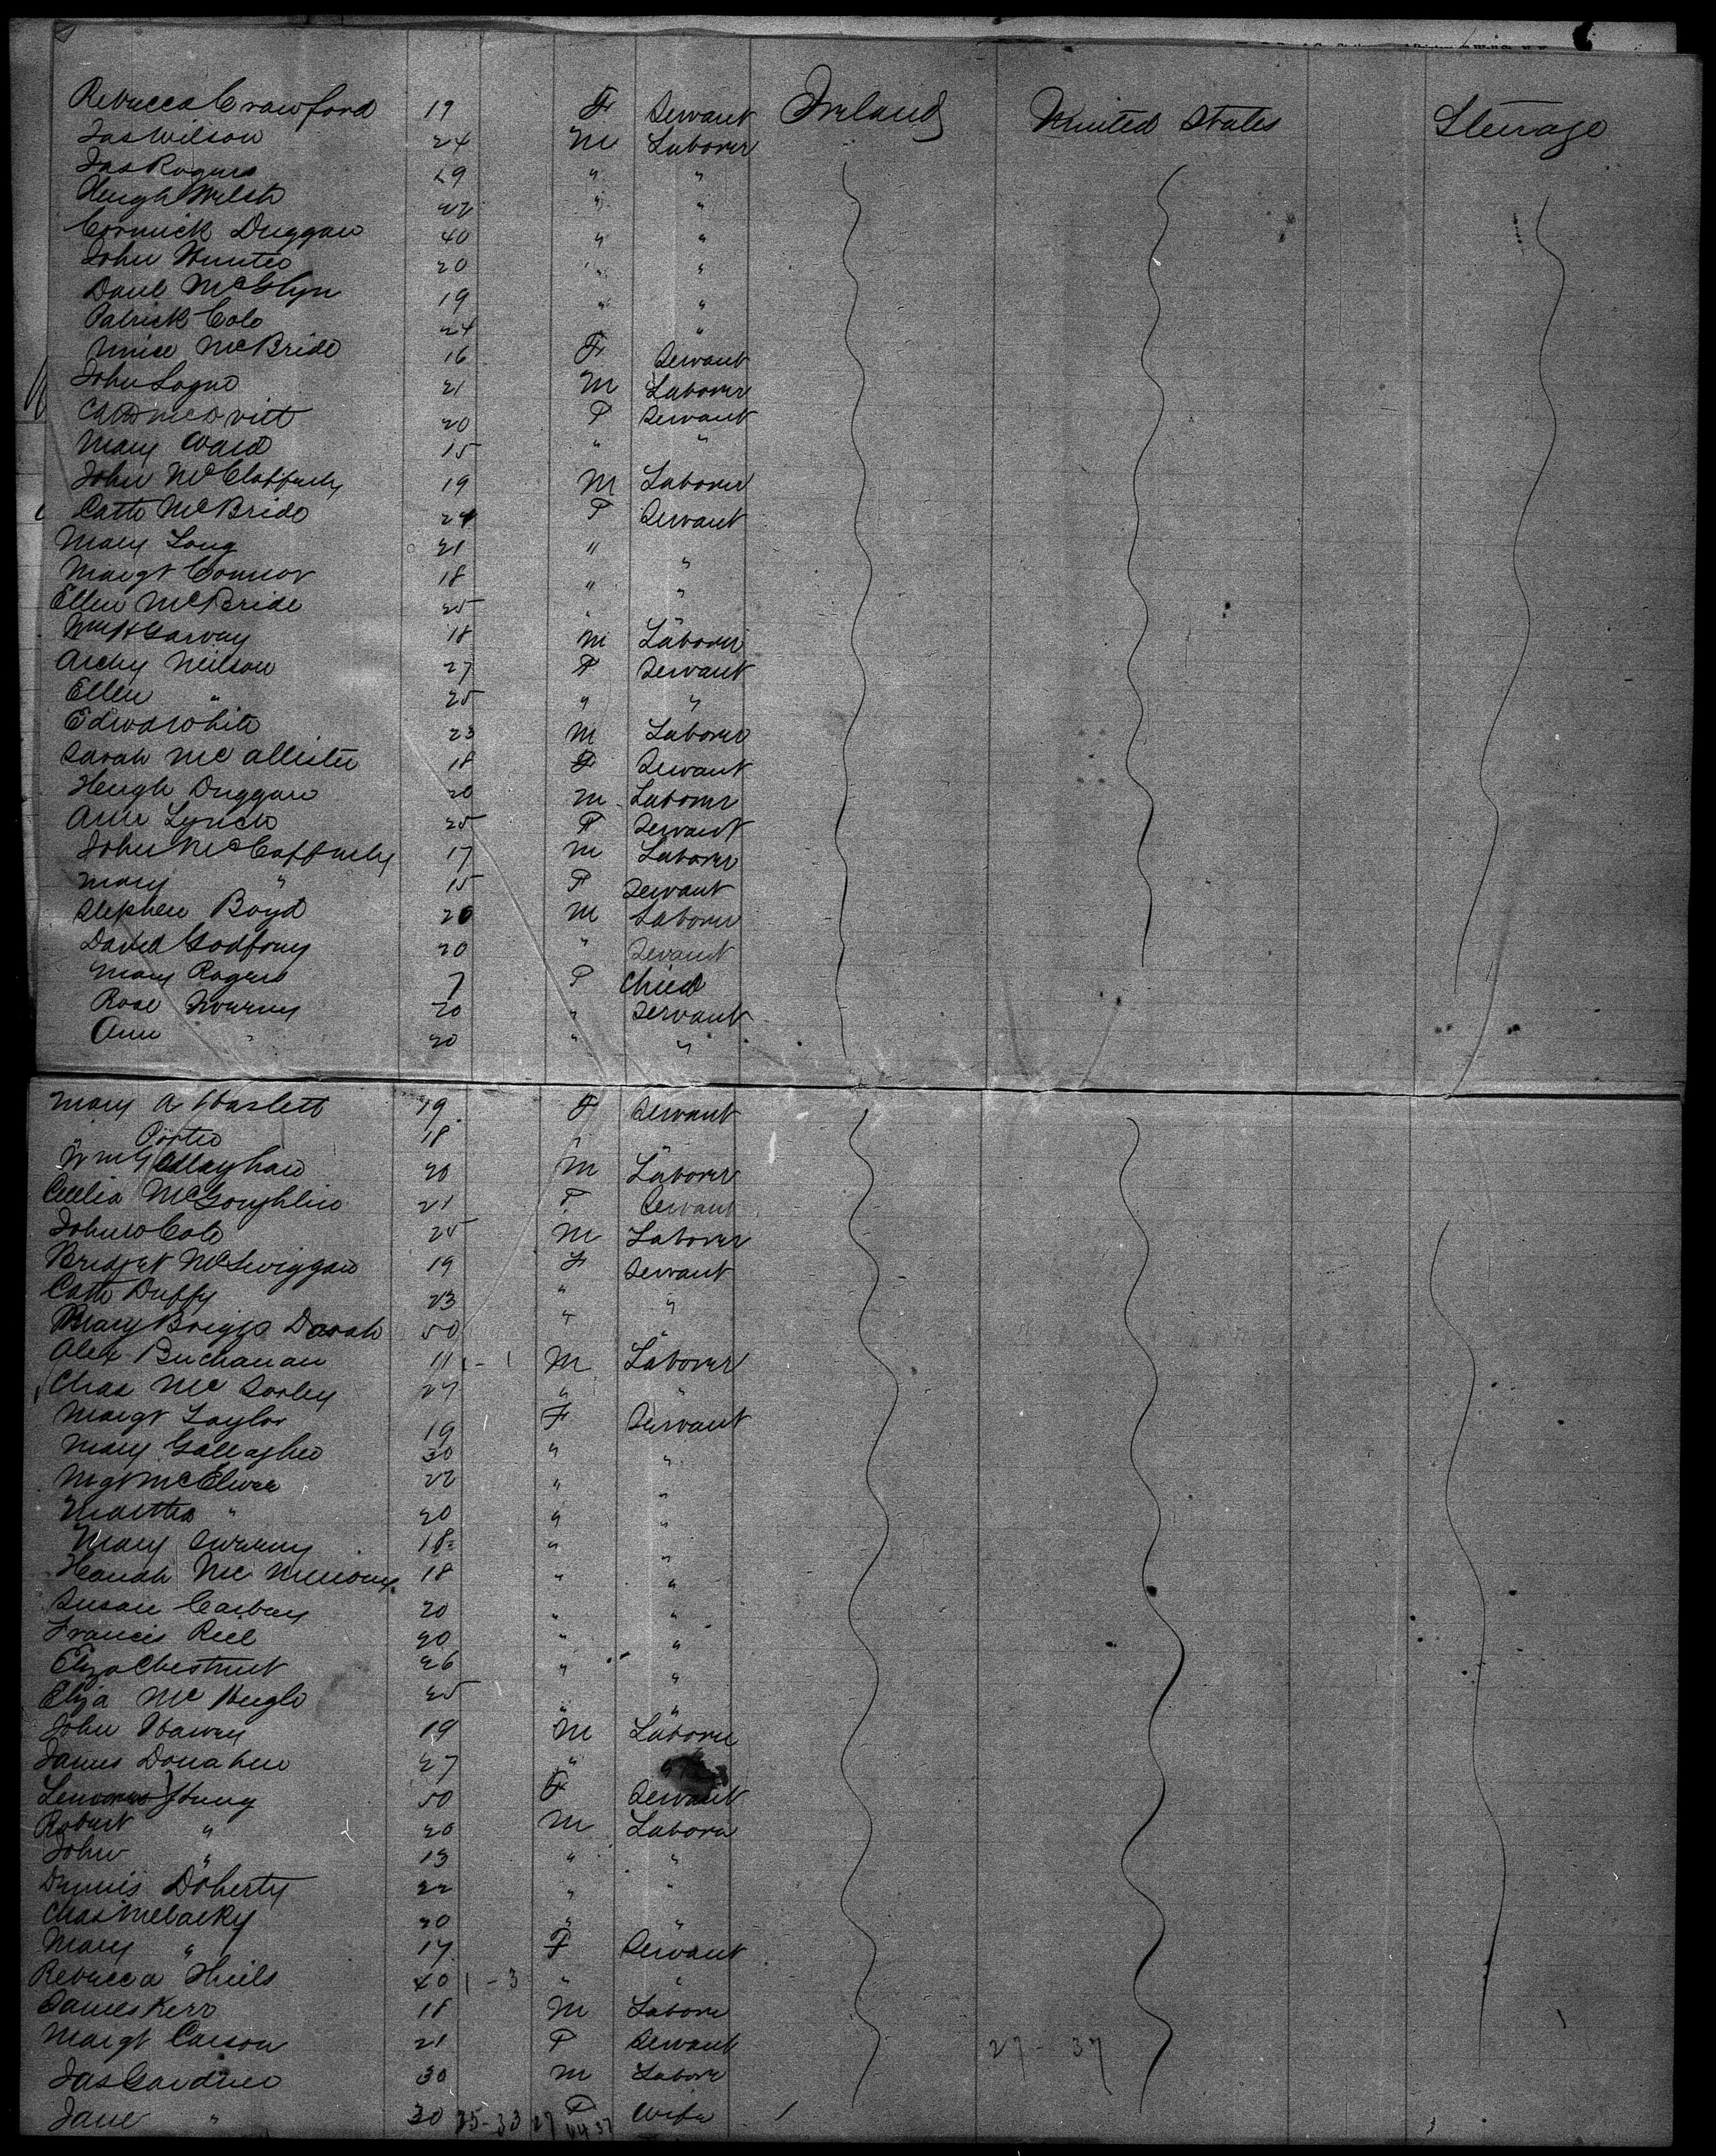 Rebecca Crawford 19 F Servant Ireland United States Steerage
Jas Wilson 24 M Laborer
Jas Rogers 19 " "
Hugh Welsh 22 " "
Cormick Duggan 40 " "
John Hunter 20 " "
Danl McGlyn 19 " "
Patrick Cole 24 "
McBride 16 F Servant
John Logue 21 M Laborer
20 F Servant
Mary Ward 15 " "
John McClafferty 19 M Laborer
Cath McBride 24 F Servant
Mary Long 21 " "
Margt Connor 18 " "
Ellen McBride 25 "
Wm H Garvey 18 M Laborer
Archy Neilson 27 F Servant
Ellen " 25 " "
Edwd White 23 M Laborer
Sarah McAllister 18 F Servant
Hugh Duggan 20 M Laborer
Ann Lynch 25 F Servant
John McCafferty 17 M Laborer
Mary " 15 F Servant
Stephen Boyd 20 M Laborer
David Godfrey 20 " Servant
Mary Rogers 7 F Child
Rose Sweeney 20 " Servant
Ann " 20 " "
Mary A Haslett 19 F Servant
" Porter 18 "
Wm Gallaghan 20 M Laborer
Cecelia McLoughlin 21 F Servant
John Cole 25 M Laborer
Bridget McSwiggan 19 F Servant
Cath Duffy 23 " "
Mary Briggs Darah 50 "
Alex Buchanan 11 1 - 1 M Laborer
Chas McSorley 27 " "
Margt Taylor 19 F Servant
Mary Gallagher 30 " "
Mgt McElwee 22 " "
Martha " 20 " "
Mary Sweeney 18 " "
Hanah Mc 18 " "
Susan Carbery 20 " "
Francis Reel 20 " "
Eliza Chestnut 26 " "
Eliza McHugh 25 " "
John Harvey 19 M Laborer
James Donahue 27 " "
50 F Servant
Robert " 20 M Laborer
John " 13 " "
Dennis Doherty 22 " "
Chas McCarky 20 " "
Mary " 17 F Servant
Rebecca Shiels 40 1 - 3 " "
James Kerr 18 M Laborer
Margt Carson 21 F Servant 27 - 37
Jas Gardner 30 M Laborer
Jane " 30 35-33 27 F Wife